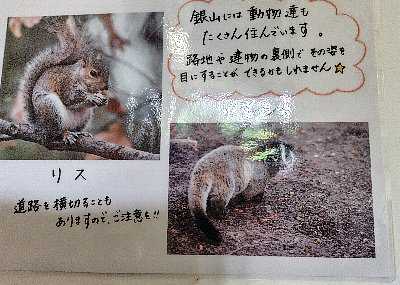 銀山には動物達も
たくさん住んでいます。
路地や建物の裏側でその姿を
目にすることができるかもしれません☆
リス
道路を横切ることも
ありますので、ご注意を!!